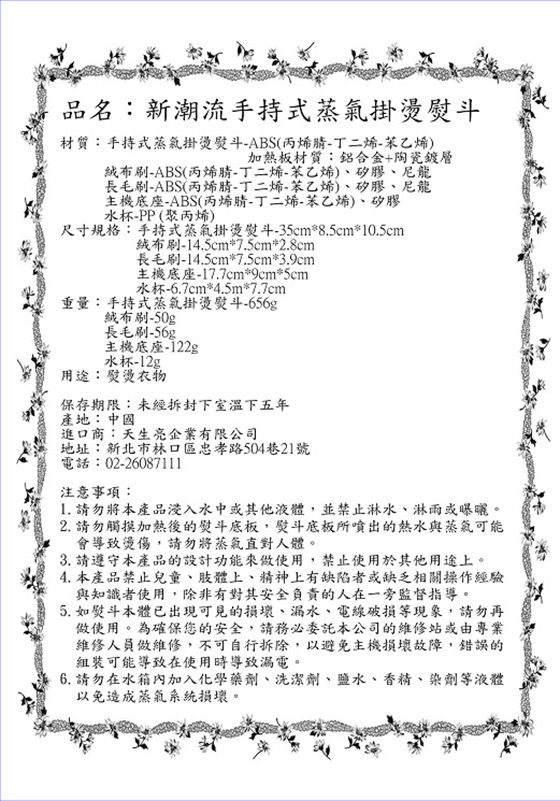 品名：新潮流手持式蒸氣掛燙熨斗
材質：手持式蒸氣掛燙熨斗-ABS(丙烯腈-丁二烯-苯乙烯)
加熱板材質：鋁合金+陶瓷鍍層
絨布刷-ABS(丙烯腈-丁二烯-苯乙烯)、矽膠、尼龍
長毛刷-ABS(丙烯腈-丁二烯-苯乙烯)、矽膠、尼龍
主機底座-ABS(丙烯腈-丁二烯-苯乙烯)、矽膠
水杯-PP (聚丙烯)
尺寸規格：手持式蒸氣掛燙熨斗-35cm*8.5cm*10.5cm
絨布刷-14.5cm*7.5cm*2.8cm
長毛刷-14.5cm*7.5cm*3.9cm
主機底座-17.7cm*9cm*5cm
水杯-6.7cm*4.5m*7.7cm
重量：手持式蒸氣掛燙熨斗-656g
絨布刷-50g
長毛刷-56g
主機底座-122g
水杯-12g
用途：熨燙衣物
保存期限：未經拆封下室溫下五年
產地：中國
進口商：天生亮企業有限公司
地址：新北市林口區忠孝路504巷21號
電話：02-26087111
注意事項：
1. 請勿將本產品浸入水中或其他液體，並禁止淋水、淋雨或曝曬。
2. 請勿觸摸加熱後的熨斗底板，熨斗底板所噴出的熱水與蒸氣可能
會導致燙傷，請勿將蒸氣直對人體。
3. 請遵守本產品的設計功能來做使用，禁止使用於其他用途上。
4. 本產品禁止兒童、肢體上、精神上有缺陷者或缺乏相關操作經驗
與知識者使用，除非有對其安全負責的人在一旁監督指導。
5. 如熨斗本體已出現可見的損壞、漏水、電線破損等現象，請勿再
做使用。為確保您的安全，請務必委託本公司的維修站或由專業
維修人員做維修，不可自行拆除，以避免主機損壞故障，錯誤的
組裝可能導致在使用時導致漏電。
6. 請勿在水箱內加入化學藥劑、洗潔劑、鹽水、香精、染劑等液體
以免造成蒸氣系統損壞。